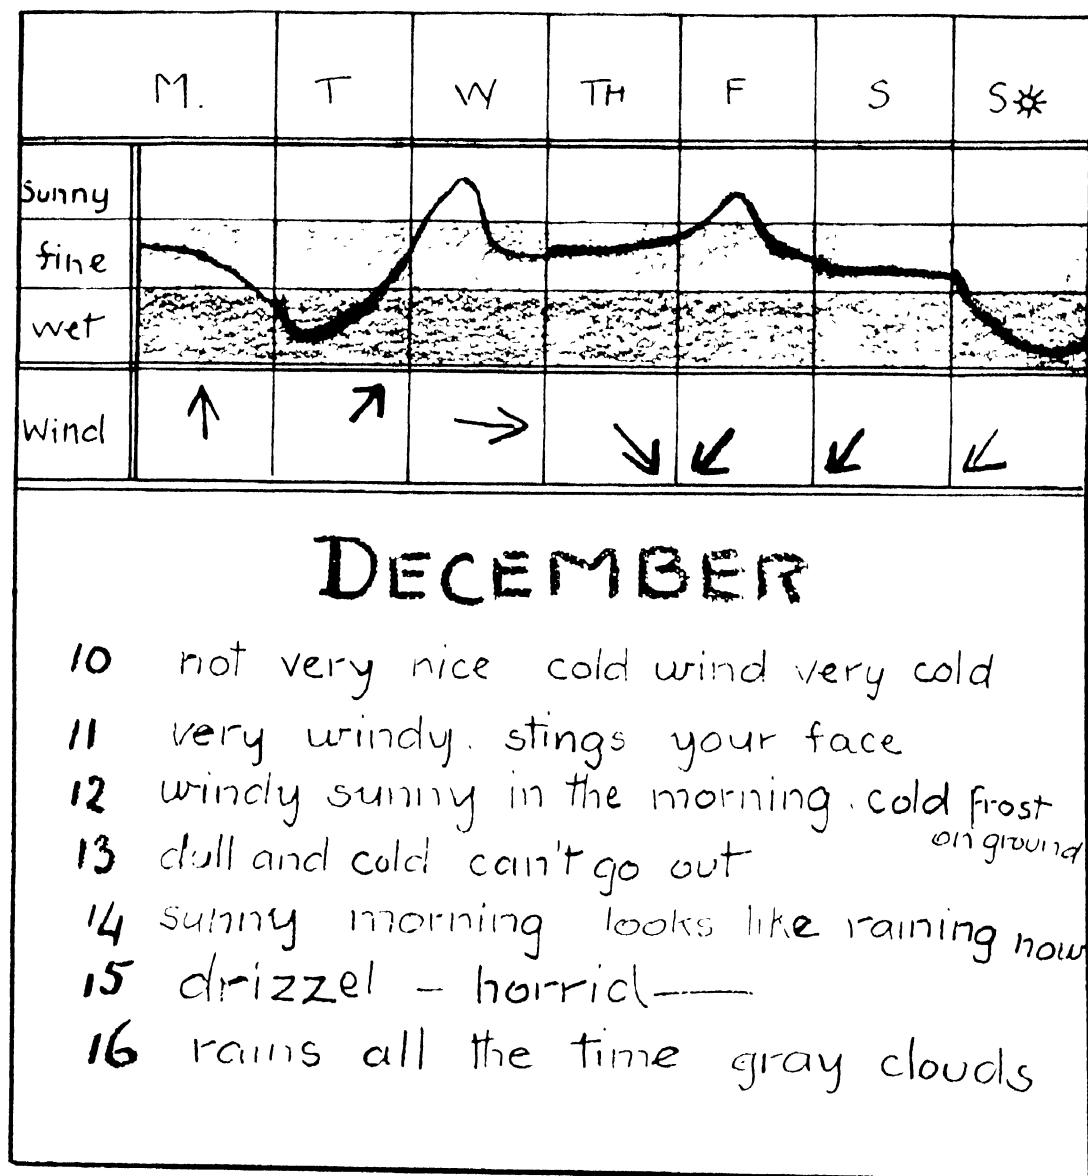 M. T W TH F S S
Sunny
fine
wet
Wind
DECEMBER
10 not very nice cold wind very cold
11 very windy. stings your face
12 windy sunny in the morning. cold frost
on ground
13 dull and cold can't go out
14 sunny morning looks like raining now
15 drizzel – horrid—
16 rains all the time gray clouds